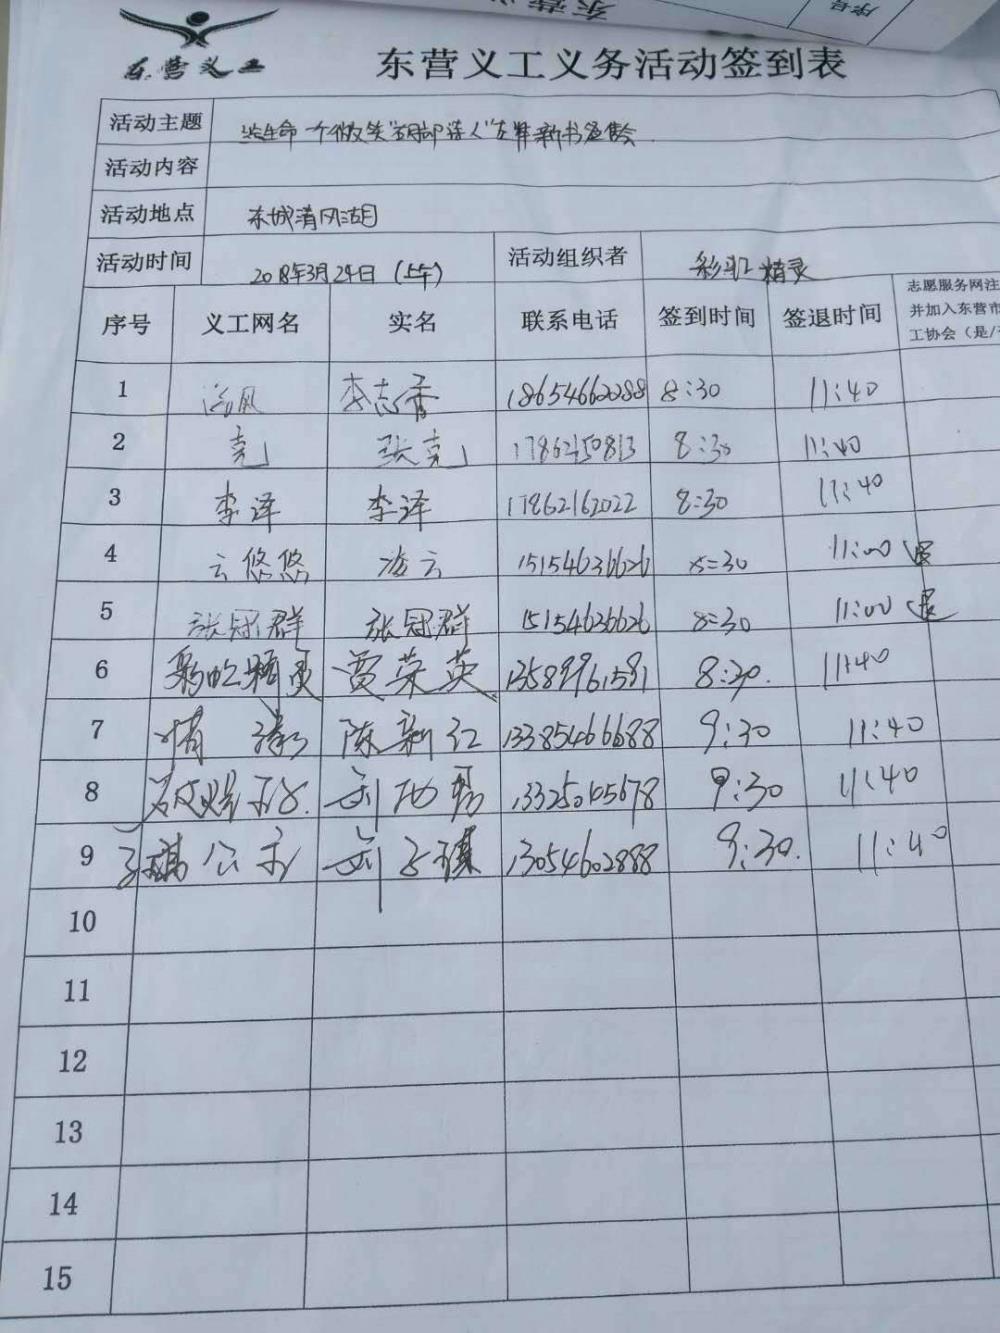 东营义工
东营义工义务活动签到表
活动主题 给生命一个微笑
活动内容
活动地点 东城清风湖
活动时间 2018年3月24日（上午） 活动组织者 彩虹精灵
序号 义工网名 实名 联系电话 签到时间 签退时间 志愿服务网注
并加入东营市
工协会（是/
1 李志香 18654660088 8:30 11:40
2 克 张克 17862150813 8:30 11:40
3 李泽 李泽 17862162022 8:30 11:40
4 云悠悠 凌云 15154636626 8:30 11:00 退
5 张冠群 张冠群 15154636626 8:30 11:00 退
6 彩虹精灵 贾荣英 13589961591 8:30. 11:40
7 陈新红 13385466688 9:30 11:40
8 13325045678 9:30 11:40
9 子祺公主 刘子祺 13054602888 9:30. 11:40
10
11
12
13
14
15